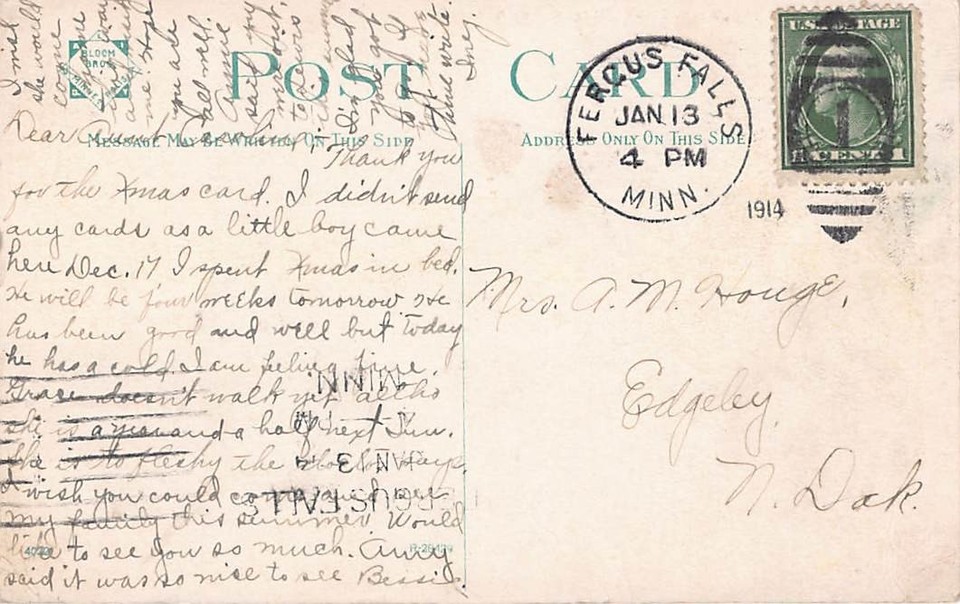 POST CARD
BLOOM
BROS.
MESSAGE MAY BE WRITTEN ON THIS SIDE
ADDRESS ONLY ON THIS SIDE
U.S. POSTAGE
1 CENT 1
FERGUS FALLS
JAN. 13
4 PM
MINN.
1914
Dear Aunt
Thank you
for the Xmas card. I didn't send
any cards as a little boy came
here Dec. 17 I spent Xmas in bed.
He will be four weeks tomorrow He
has been good and well but today
he has a cold. I am feeling fine.
Grace doesn't walk yet altho
she is a year and a half next Sun.
She is to fleshy the
I wish you could come and see
my family this summer Would
like to see you so much.
said it was so nice to see Bessie.
I wish
she would
come
hope
you are
all well.
to
you got
write.
Inez.
Mrs. A. M. Houge,
Edgeley,
N. Dak.
MINN.
JAN 13
FERGUS FALLS